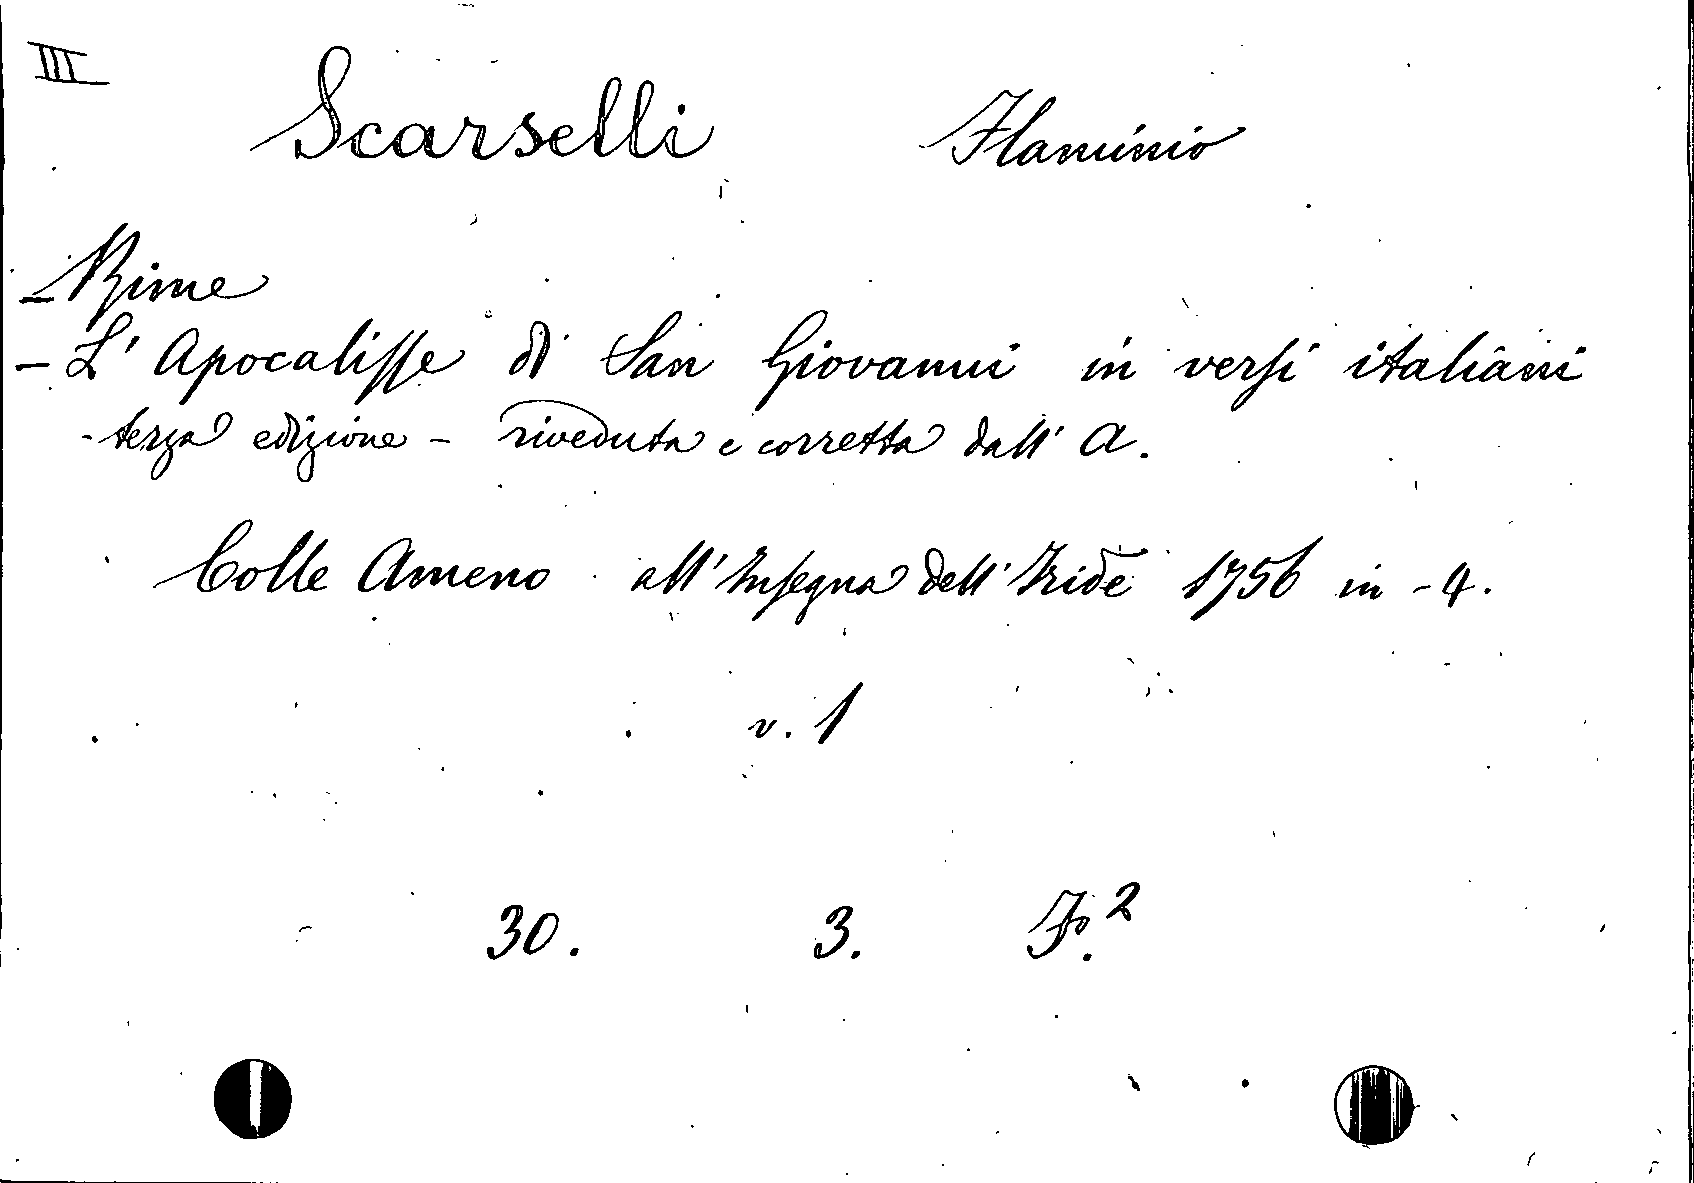 III
Scarselli Flaminio
- Rime
- L' Apocalisse di San Giovanni in versi italiani
- terza edizione - riveduta e corretta dall' A.
Colle Ameno all' Insegna dell' Iride 1756 in - 4.
v. 1
30. 3. F.²